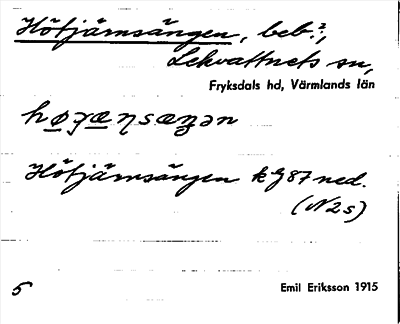 Hötjärnsängen, beb.?,
Lekvattnets sn,
Fryksdals hd, Värmlands län
Hötjärnsängen kg 87 ned.
(N2s)
5
Emil Eriksson 1915